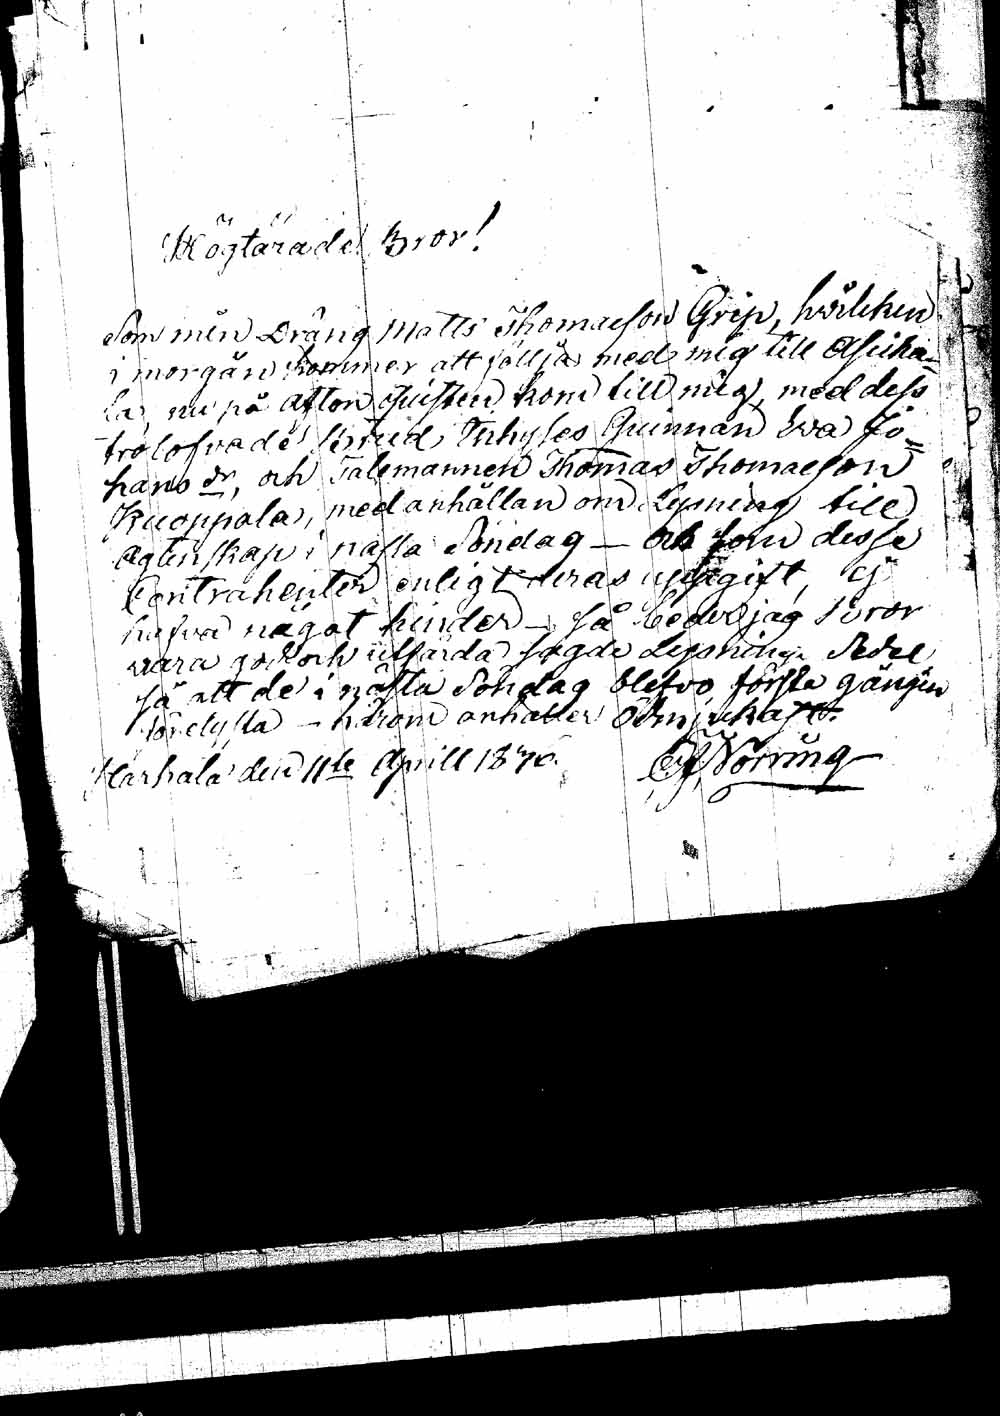 Högtärade Bror!
Som min Dräng Matts Thomaeson Grip, hvilcken
i morgån kommer att föllja med mig till Asicka-
la, nu på afton qvisten kom till mig, med dess
trolofvade Brud, Inhyses Quinnan Eva Jo=
hans dr, och Talemannen Thomas Thomaeson
Kuoppala, med anhållan om Lysning till
Ägtenskap i nästa Söndag — och som desse
Contrahenter enligt deras uppgift, ej
hafva något hinder — så beder jag Bror
vara god och utfärda sagde Lysnings Sedel
så att de i nästa Söndag blefvo första gången
förelysta — härom anhåller ödmjukast.
Harhala den 11te Aprill 1836. Norring